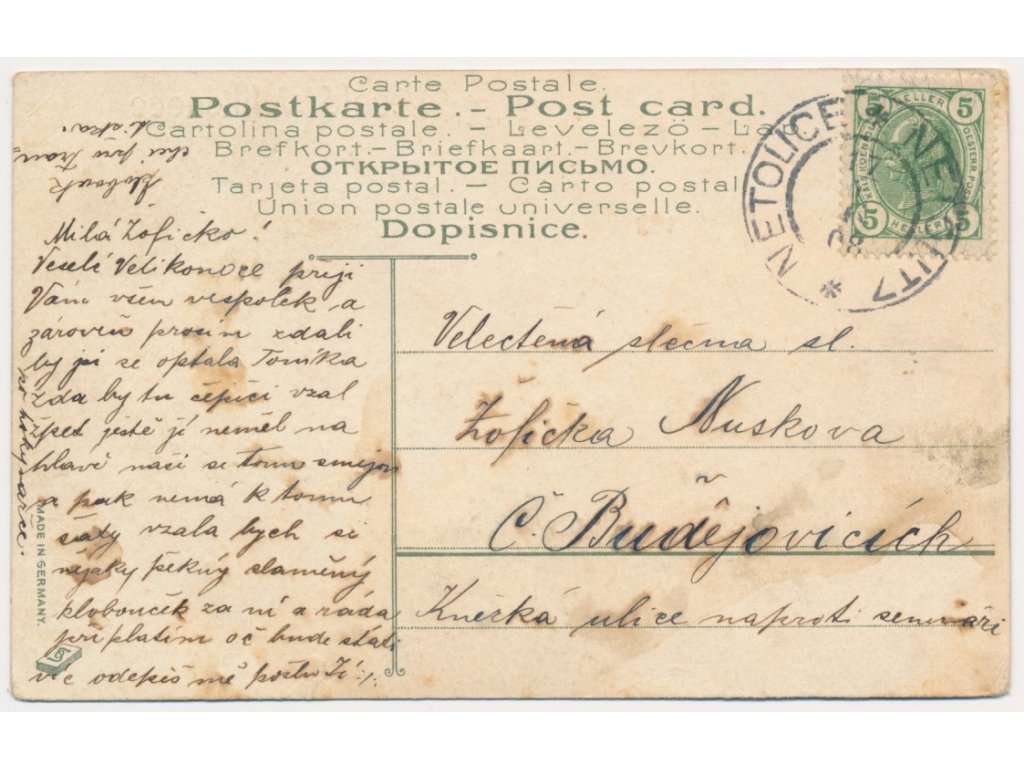 Carte Postale.
Postkarte. - Post card.
Cartolina postale. - Levelezö - Lap
Brefkort. - Briefkaart. - Brevkort.
ОТКРЫТОЕ ПИСЬМО.
Tarjeta postal. - Carto postal
Union postale universelle.
Dopisnice.
NETOLICE NETOLITZ
08
5 HELLER 5
5 HELLER 5
klobouk
chci pro
Milá Žofičko!
Veselé Velikonoce přeji
Vám všem vespolek a
zároveň prosím zdali
by ji se optala Toníka
zda by tu čepici vzal
zpet jestě jí neměl na
hlavě naši se tomu smějou
a pak nemá k tomu
šaty vzala bych si
nějaky pěkný slaměný
klobouček za ní a ráda
při platím oč bude státi
víc odepiš mě
Velectěná slečna sl.
Žofička Nuskova
Č. Budějovicích
Kněžká ulice naproti semináři
MADE IN GERMANY.